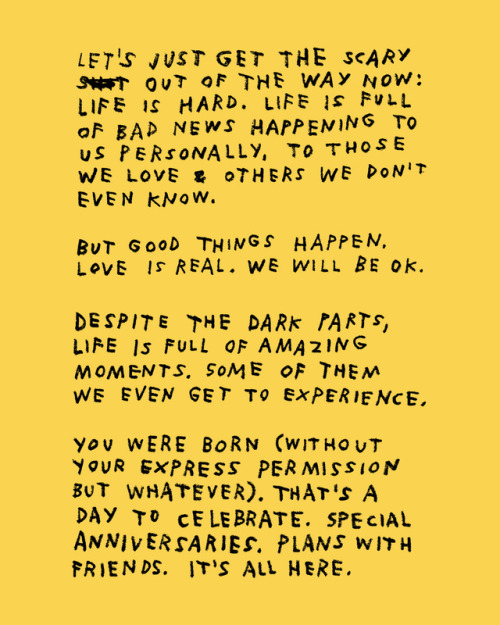 LET'S JUST GET THE SCARY
OUT OF THE WAY NOW:
LIFE IS HARD. LIFE IS FULL
OF BAD NEWS HAPPENING TO
US PERSONALLY, TO THOSE
WE LOVE & OTHERS WE DON'T
EVEN KNOW.
BUT GOOD THINGS HAPPEN.
LOVE IS REAL. WE WILL BE OK.
DESPITE THE DARK PARTS,
LIFE IS FULL OF AMAZING
MOMENTS. SOME OF THEM
WE EVEN GET TO EXPERIENCE.
YOU WERE BORN (WITHOUT
YOUR EXPRESS PERMISSION
BUT WHATEVER). THAT'S A
DAY TO CELEBRATE. SPECIAL
ANNIVERSARIES. PLANS WITH
FRIENDS. IT'S ALL HERE.